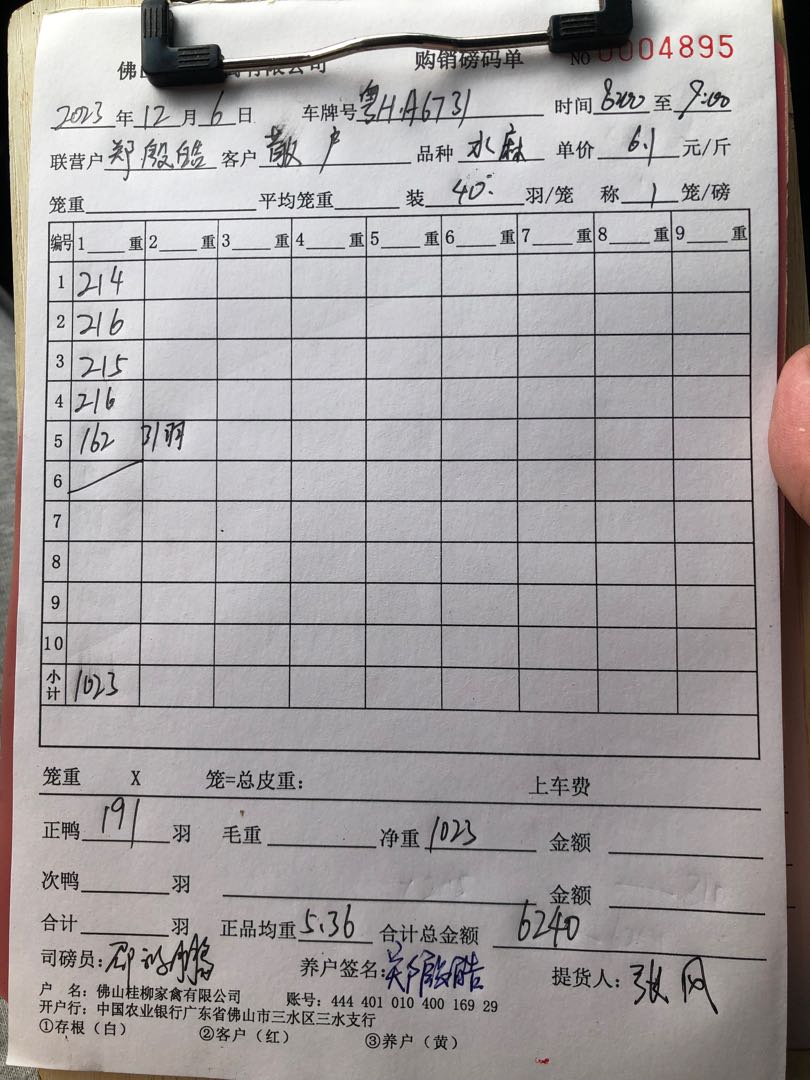 佛山 有限公司 购销磅码单 NO 0004895
2023 年 12 月 6 日 车牌号 粤H·A6731 时间 8:00 至 9:00
联营户 郑殷皓 客户 散户 品种 水麻 单价 6.1 元/斤
笼重 平均笼重 装 40 羽/笼 称 1 笼/磅
编号 1 重 2 重 3 重 4 重 5 重 6 重 7 重 8 重 9 重
1 214
2 216
3 215
4 216
5 162 31羽
6
7
8
9
10
小计 1023
笼重 X 笼=总皮重: 上车费
正鸭 191 羽 毛重 净重 1023 金额
次鸭 羽 金额
合计 羽 正品均重 5.36 合计总金额 6240
司磅员: 养户签名: 郑殷皓 提货人: 张风
户 名: 佛山桂柳家禽有限公司 账号: 444 401 010 400 169 29
开户行: 中国农业银行广东省佛山市三水区三水支行
①存根（白） ②客户（红） ③养户（黄）